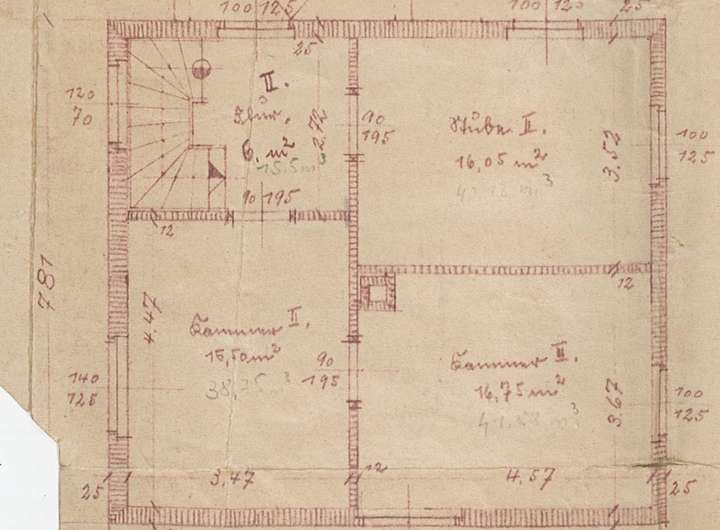 100 125
100 120
25
25
120
70
II.
Flur.
6, m²
15,5 m³
2,72
90
195
Stube II.
16,05 m²
3,52
100
125
90 195
12
12
781
4,47
Kammer II.
15,50m²
38,75 ³
90
195
Kammer III.
16,75m²
41,88 m³
3,67
140
125
100
125
25
3,47
12
4,57
25